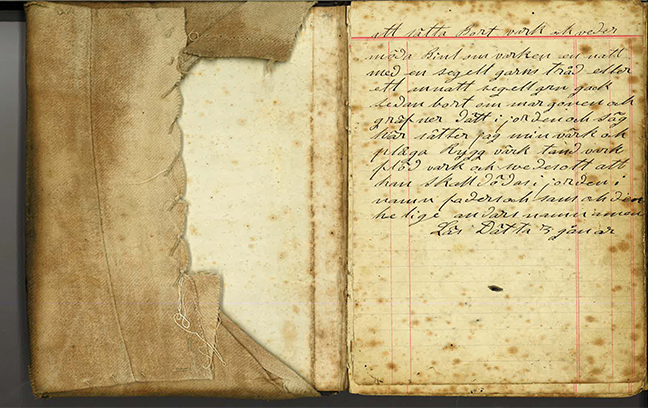 att sätta Bort värk och veder
möda Bint om värken en natt
med en segell garns tråd eller
ett annatt segellgarn gack
sedan bort om margonen och
gräf ner dätt i jorden och säg
här sätter jag min värk och
plåga Rygg värk tand värk
flöd värk och svedesott att
han skall dödas i jorden i
namn faders och sons och den
helige andars namn amen
Läs Dätta 3 gånar